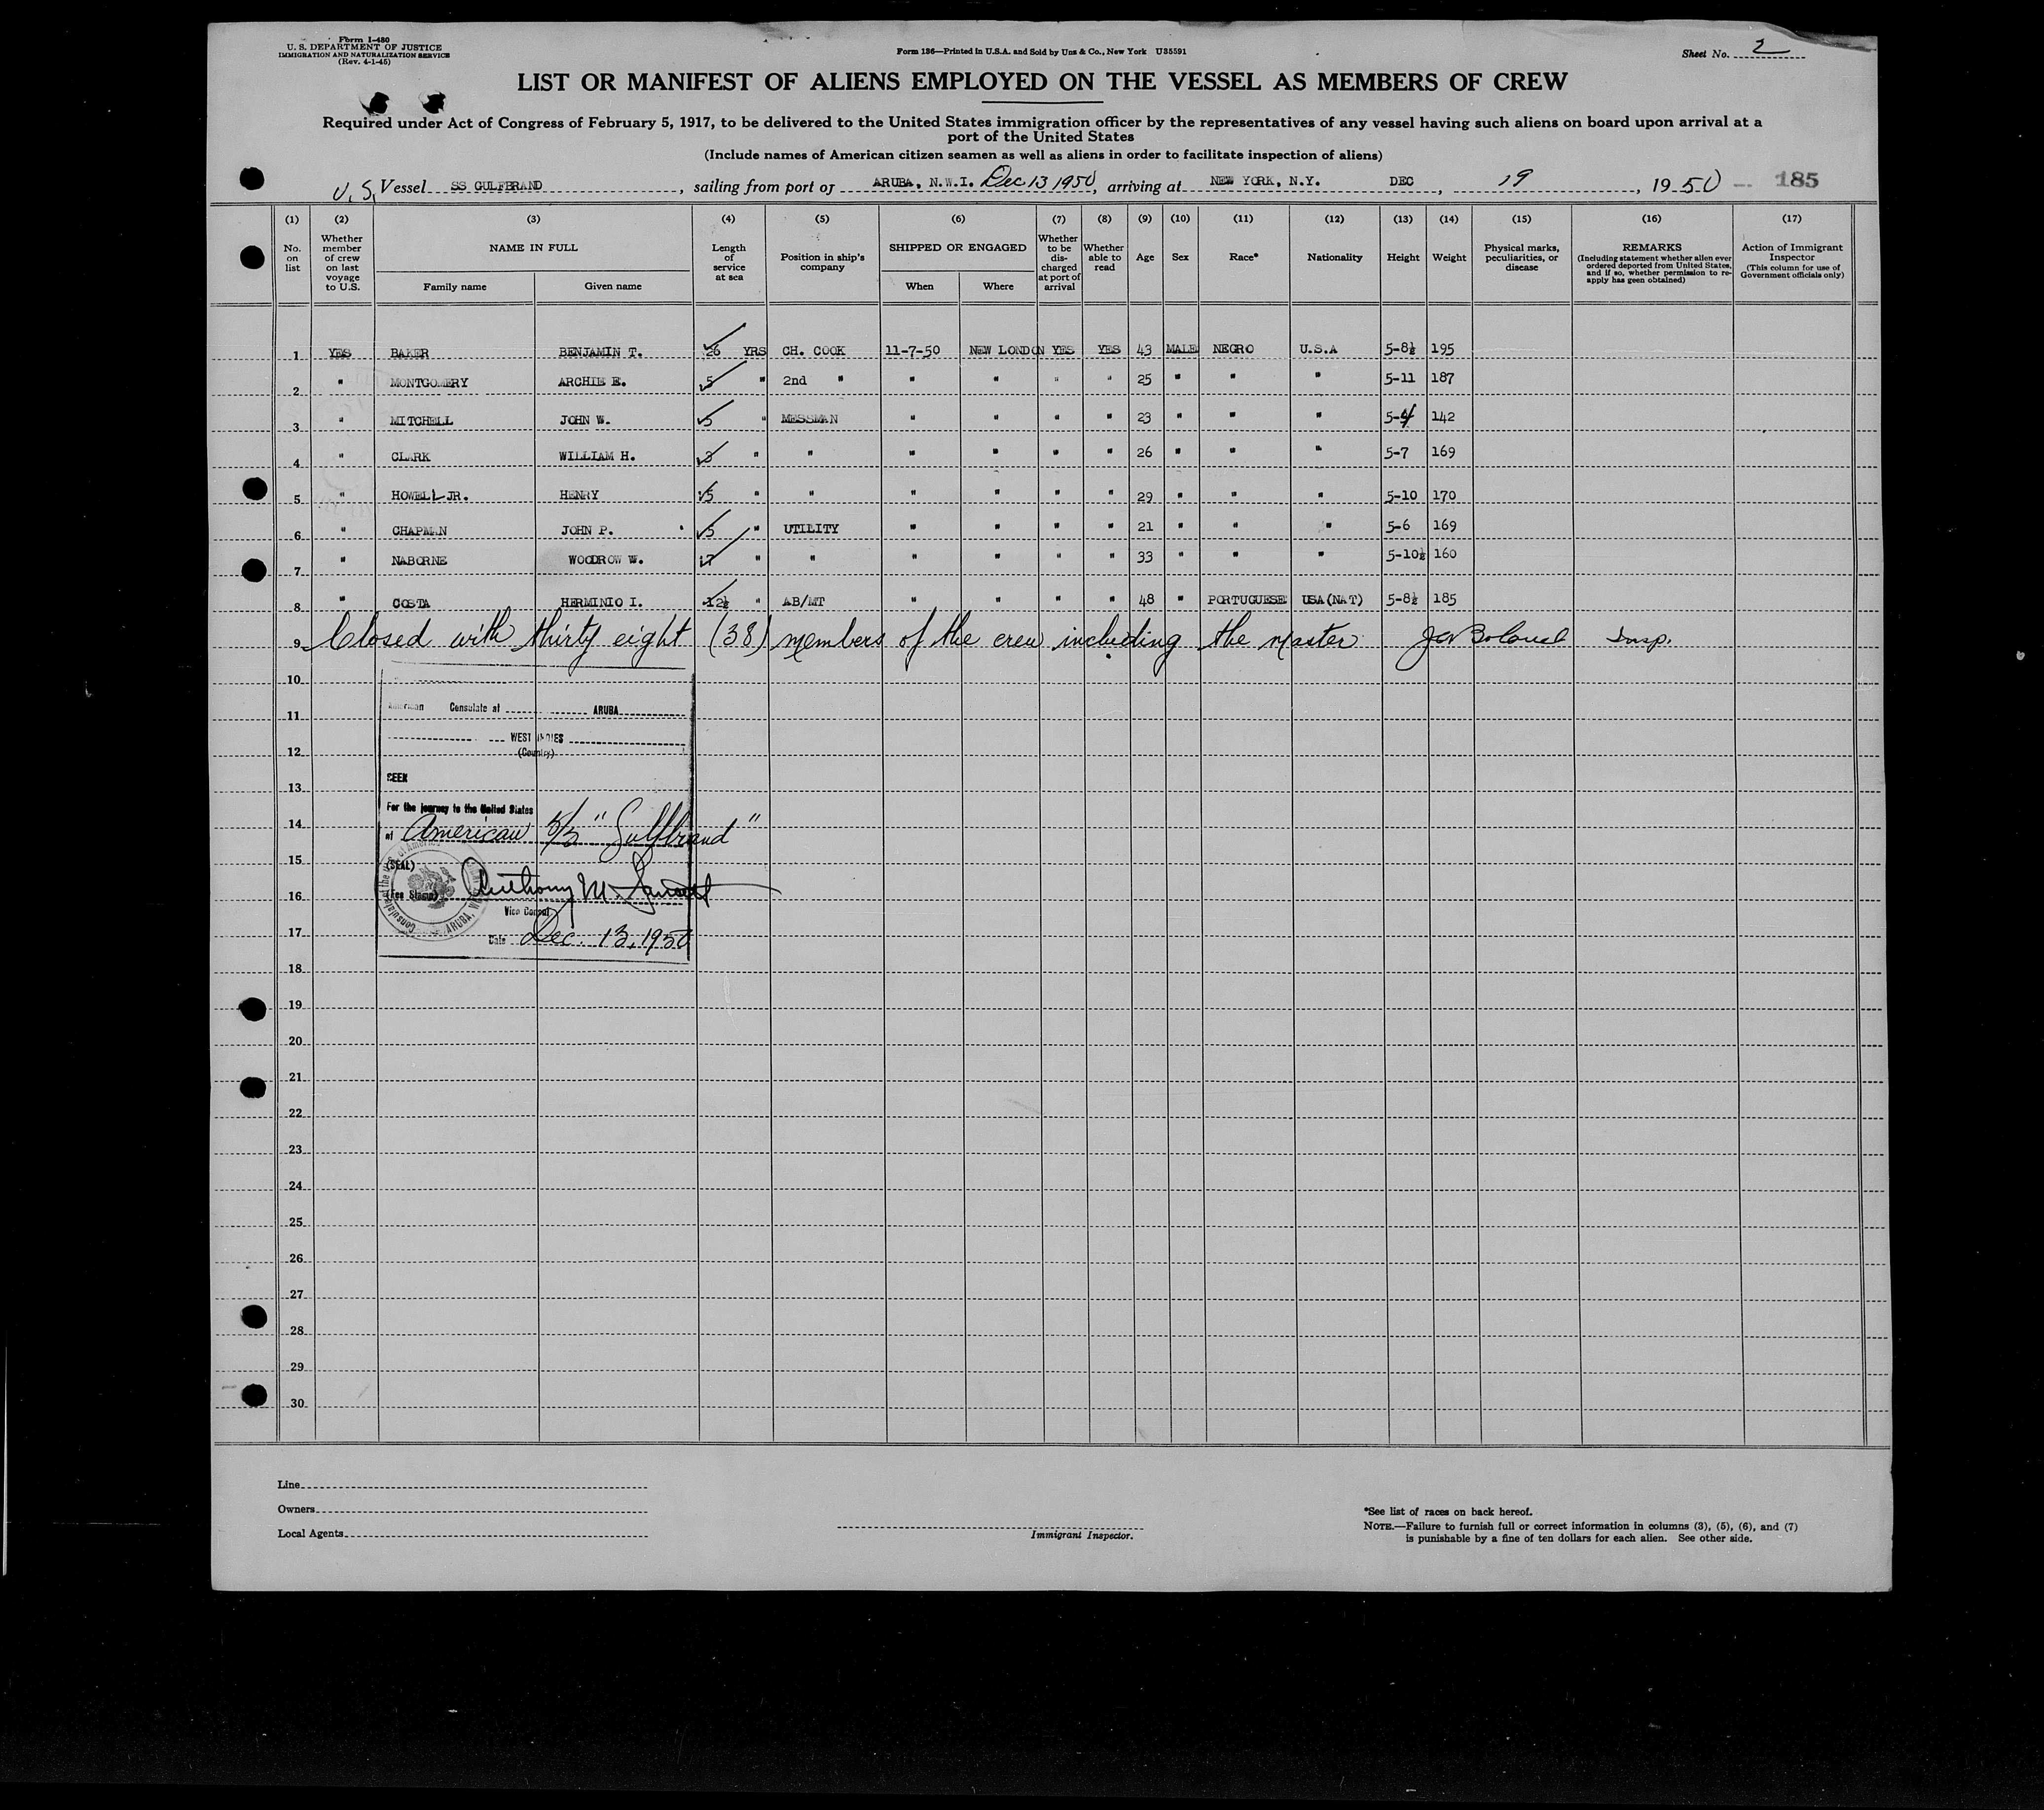 Form I-480
U. S. DEPARTMENT OF JUSTICE
IMMIGRATION AND NATURALIZATION SERVICE
(Rev. 4-1-45)
Form 136—Printed in U.S.A. and Sold by Unz & Co., New York U35591
Sheet No. 2
LIST OR MANIFEST OF ALIENS EMPLOYED ON THE VESSEL AS MEMBERS OF CREW
Required under Act of Congress of February 5, 1917, to be delivered to the United States immigration officer by the representatives of any vessel having such aliens on board upon arrival at a
port of the United States
(Include names of American citizen seamen as well as aliens in order to facilitate inspection of aliens)
U.S. Vessel SS GULFBRAND, sailing from port of ARUBA, N.W.I. Dec 13 1950, arriving at NEW YORK, N.Y. DEC, 19, 1950 185
(1) (2) (3) (4) (5) (6) (7) (8) (9) (10) (11) (12) (13) (14) (15) (16) (17)
No. on list
Whether member of crew on last voyage to U.S.
NAME IN FULL
Family name
Given name
Length of service at sea
Position in ship's company
SHIPPED OR ENGAGED
When
Where
Whether to be discharged at port of arrival
Whether able to read
Age
Sex
Race*
Nationality
Height
Weight
Physical marks, peculiarities, or disease
REMARKS
(Including statement whether alien ever ordered deported from United States, and if so, whether permission to re-apply has geen obtained)
Action of Immigrant Inspector
(This column for use of Government officials only)
1 YES BAKER BENJAMIN T. 26 YRS CH. COOK 11-7-50 NEW LONDON YES YES 43 MALE NEGRO U.S.A 5-8½ 195
2 " MONTGOMERY ARCHIE E. 5 " 2nd " " " " " 25 " " " 5-11 187
3 " MITCHELL JOHN W. 5 " MESSMAN " " " " 23 " " " 5-4 142
4 " CLARK WILLIAM H. 3 " " " " " " 26 " " " 5-7 169
5 " HOWELL JR. HENRY 5 " " " " " " 29 " " " 5-10 170
6 " CHAPMAN JOHN P. 5 " UTILITY " " " " 21 " " " 5-6 169
7 " NABORNE WOODROW W. 17 " " " " " " 33 " " " 5-10½ 160
8 " COSTA HERMINIO I. 12½ " AB/MT " " " " 48 " PORTUGUESE USA(NAT) 5-8½ 185
9 Closed with thirty eight (38) members of the crew including the master Insp.
10
11
12
13
14
15
16
17
18
19
20
21
22
23
24
25
26
27
28
29
30
American Consulate at ARUBA
WEST INDIES
(Country)
SEEN
For the journey to the United States
of American S/S "Gulfbrand"
(SEAL)
(Fee Stamp)
Anthony M.
Vice Consul
Date Dec. 13, 1950
Line
Owners
Local Agents
Immigrant Inspector.
*See list of races on back hereof.
NOTE.—Failure to furnish full or correct information in columns (3), (5), (6), and (7)
is punishable by a fine of ten dollars for each alien. See other side.